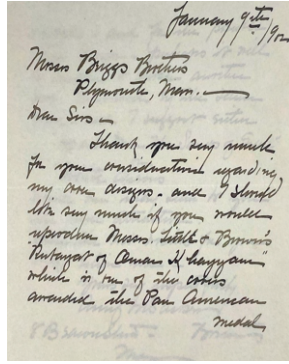 January 9th /902
Messrs Briggs Brothers
Plymouth, Mass. —
Dear Sirs —
Thank you very much
for your consideration regarding
my cover designs. and I should
like very much if you would
Messrs. Little & Brown's
"Rubaiyat of Omar Khayyam"
which is one of the covers
awarded the Pan American
Medal,